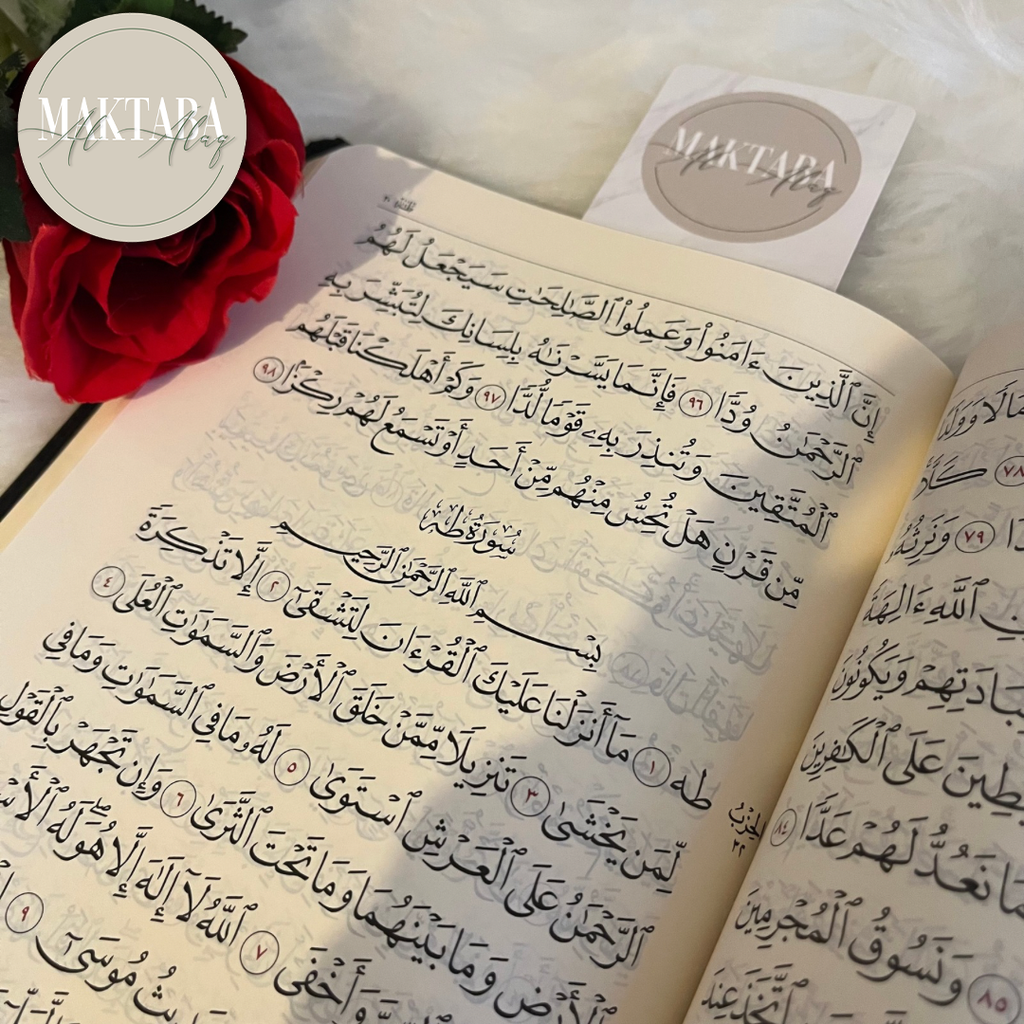 MAKTABA
Al-Alaq
MAKTABA
Al-Alaq
إِنَّ ٱلَّذِينَ ءَامَنُوا۟ وَعَمِلُوا۟ ٱلصَّـٰلِحَـٰتِ سَيَجْعَلُ لَهُمُ
ٱلرَّحْمَـٰنُ وُدًّا ٩٦ فَإِنَّمَا يَسَّرْنَـٰهُ بِلِسَانِكَ لِتُبَشِّرَ بِهِ
ٱلْمُتَّقِينَ وَتُنذِرَ بِهِۦ قَوْمًا لُّدًّا ٩٧ وَكَمْ أَهْلَكْنَا قَبْلَهُم
مِّن قَرْنٍ هَلْ تُحِسُّ مِنْهُم مِّنْ أَحَدٍ أَوْ تَسْمَعُ لَهُمْ رِكْزًۢا ٩٨
سُورَةُ طه
بِسْمِ ٱللَّهِ ٱلرَّحْمَـٰنِ ٱلرَّحِيمِ
طه ١ مَآ أَنزَلْنَا عَلَيْكَ ٱلْقُرْءَانَ لِتَشْقَىٰٓ ٢ إِلَّا تَذْكِرَةً
لِّمَن يَخْشَىٰ ٣ تَنزِيلًا مِّمَّنْ خَلَقَ ٱلْأَرْضَ وَٱلسَّمَـٰوَٰتِ ٱلْعُلَى ٤
ٱلرَّحْمَـٰنُ عَلَى ٱلْعَرْشِ ٱسْتَوَىٰ ٥ لَهُۥ مَا فِى ٱلسَّمَـٰوَٰتِ وَمَا فِى
ٱلْأَرْضِ وَمَا بَيْنَهُمَا وَمَا تَحْتَ ٱلثَّرَىٰ ٦ وَإِن تَجْهَرْ بِٱلْقَوْلِ
وَأَخْفَى ٧ ٱللَّهُ لَآ إِلَـٰهَ إِلَّا هُوَ ۖ لَهُ
مُوسَىٰٓ ٩
ٱلحزب
٣٢
مَالًا وَوَلَدًا
٧٨ كَلَّا
٧٩ وَنَرِثُهُۥ
ٱللَّهِ ءَالِهَةً
بِعِبَادَتِهِمْ وَيَكُونُونَ
عَلَى ٱلْكَـٰفِرِينَ
نَعُدُّ لَهُمْ عَدًّا ٨٤
٨٥ وَنَسُوقُ ٱلْمُجْرِمِينَ
ٱتَّخَذَ عِندَ